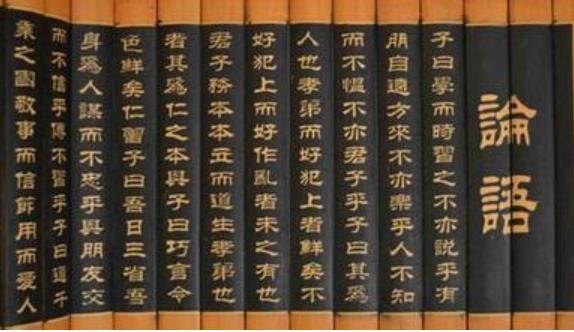 論語
子曰學而時習之不亦說乎有
朋自遠方來不亦樂乎人不知
而不慍不亦君子乎子曰其爲
人也孝弟而好犯上者鮮矣不
好犯上而好作亂者未之有也
君子務本本立而道生孝弟也
者其爲仁之本與子曰巧言令
色鮮矣仁曾子曰吾日三省吾
身爲人謀而不忠乎與朋友交
而不信乎傳不習乎子曰道千
乘之國敬事而信節用而愛人